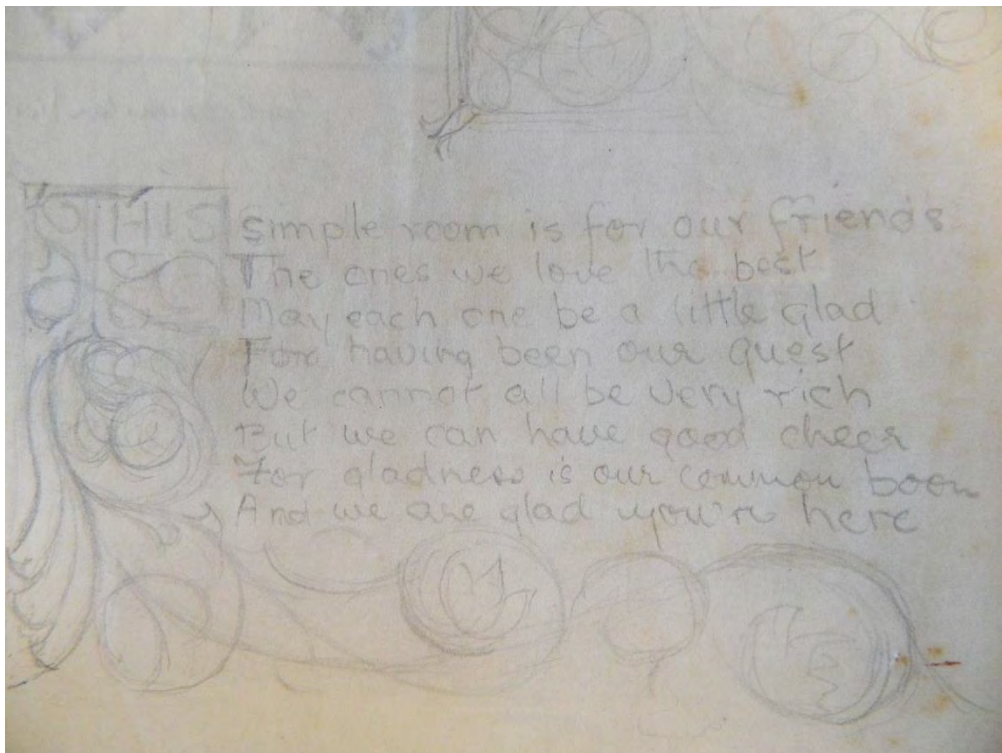 THIS simple room is for our friends
The ones we love the best
May each one be a little glad
For having been our guest
We cannot all be very rich
But we can have good cheer
For gladness is our common boon
And we are glad you'r here